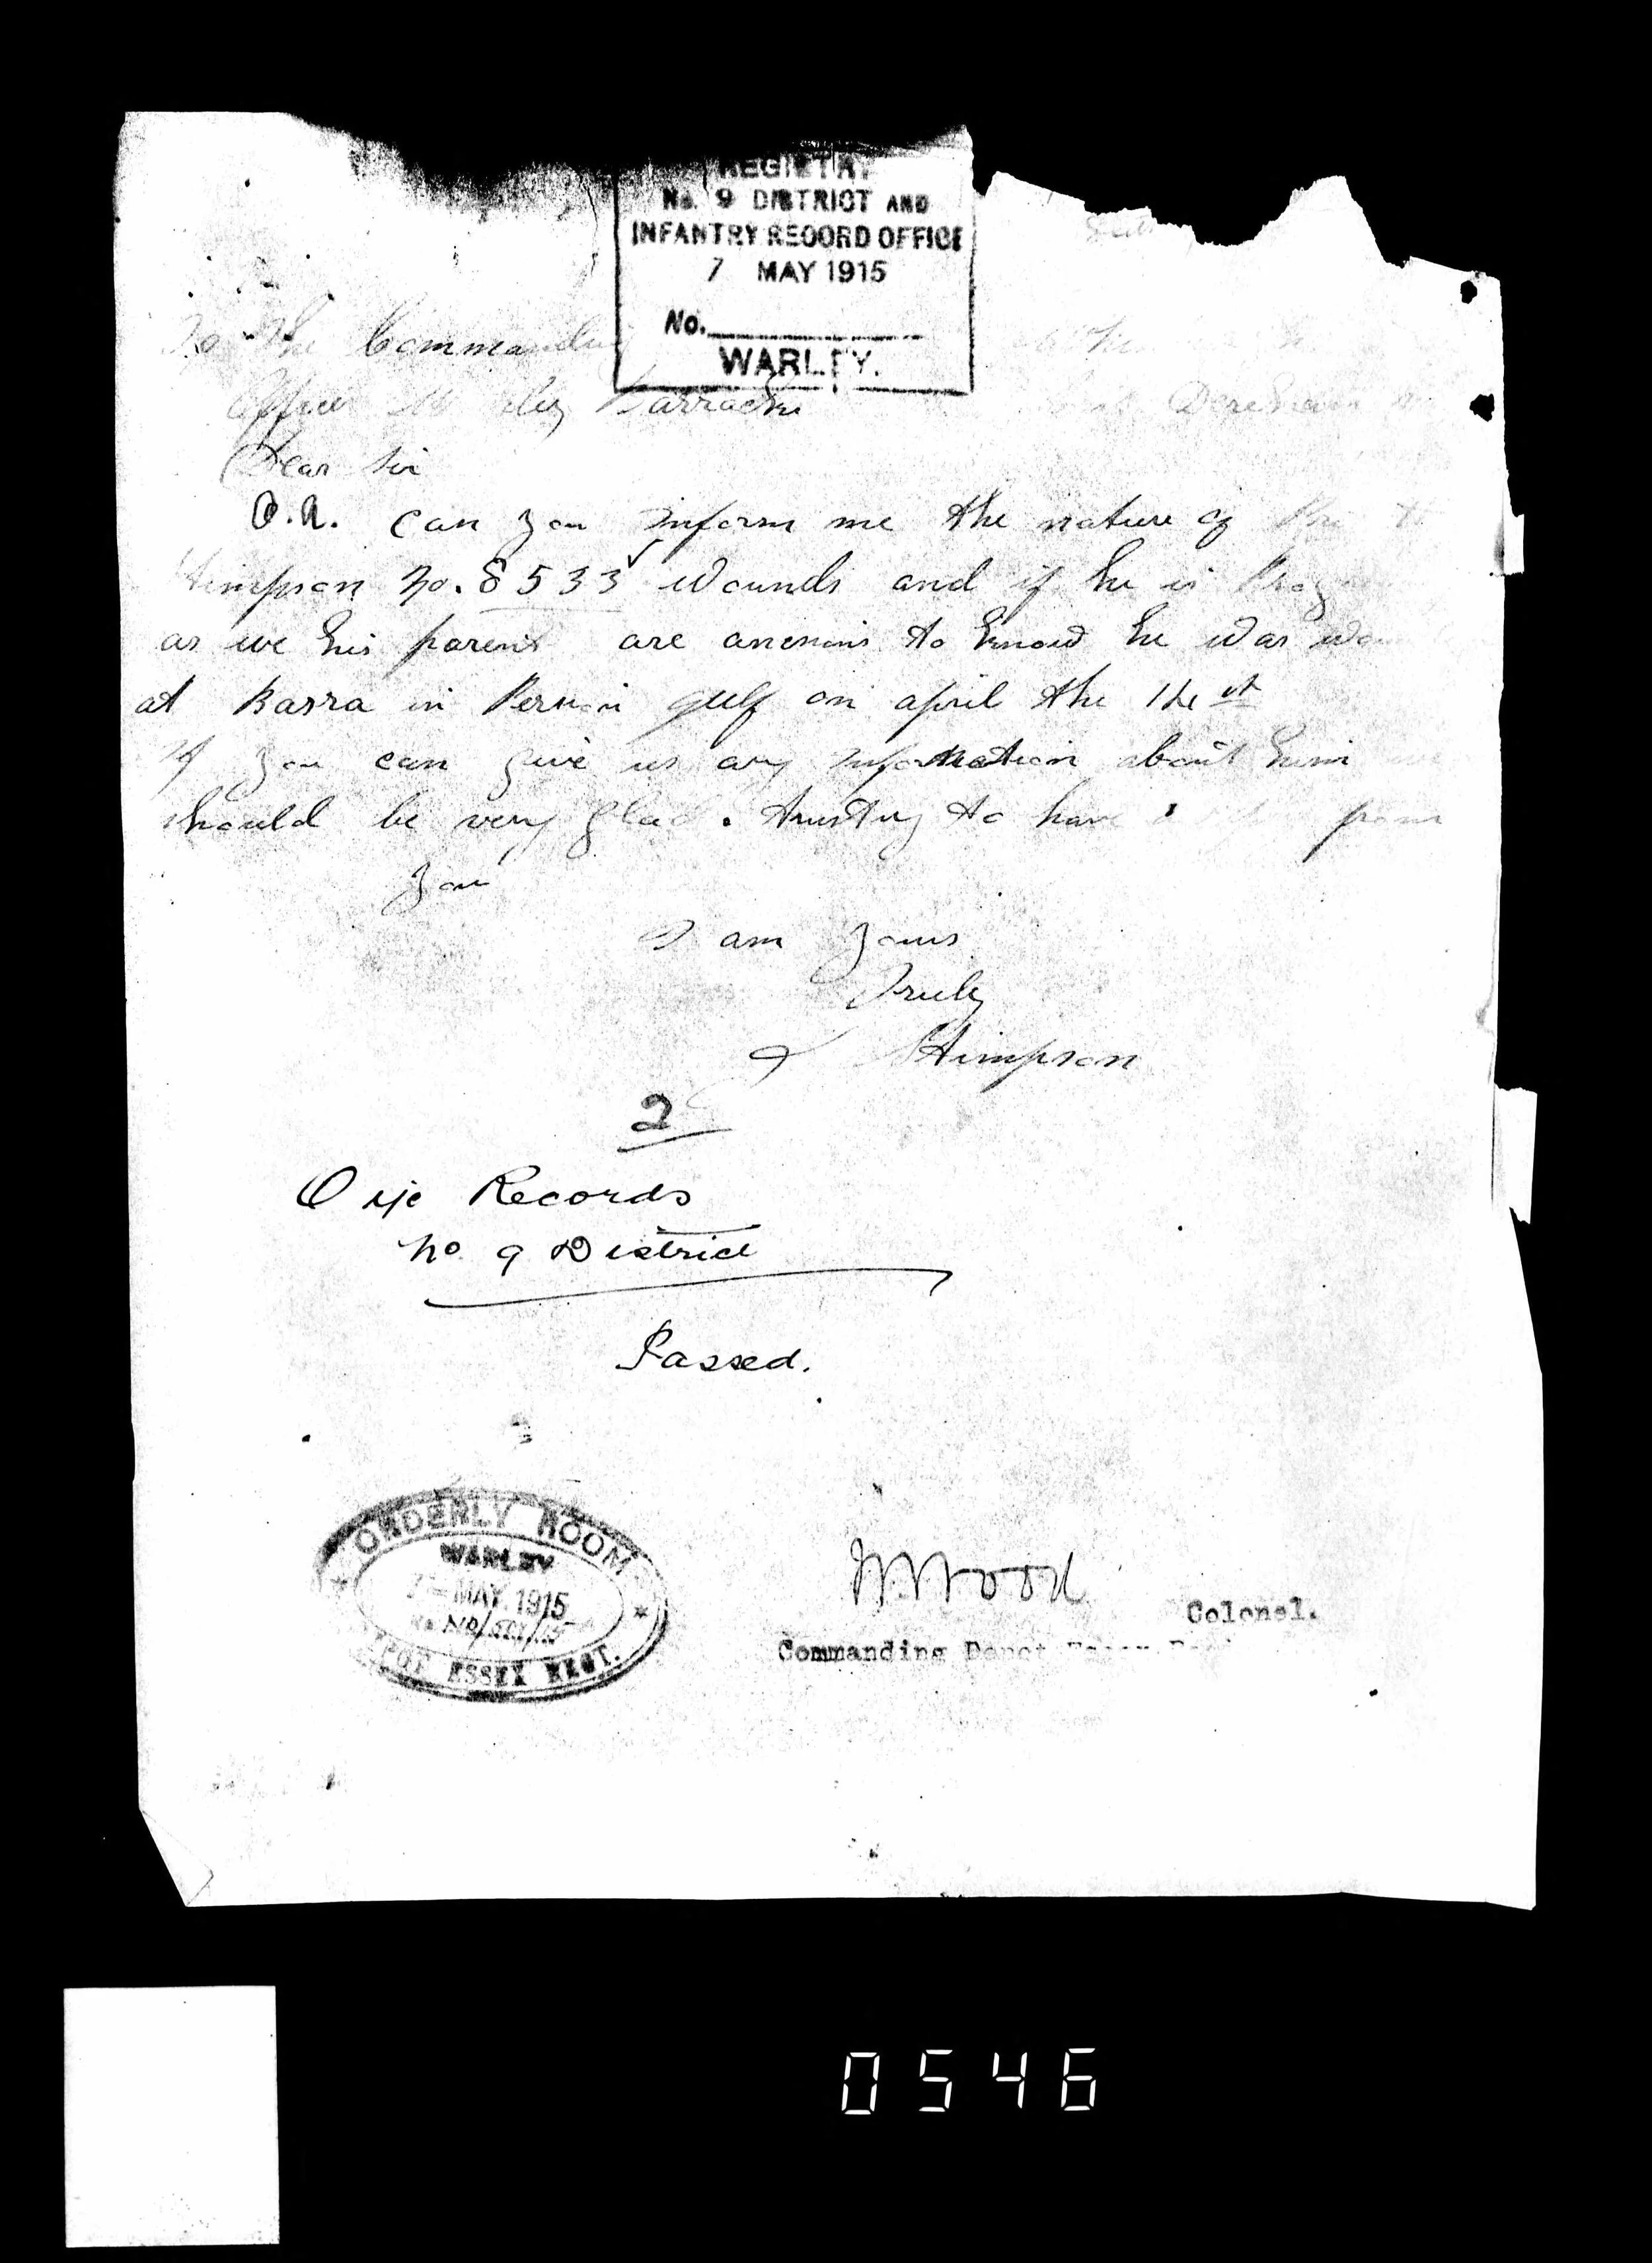 REGISTRY
No. 9 DISTRICT AND
INFANTRY RECORD OFFICE
7 MAY 1915
No.
WARLEY.
To The Commanding
Officer Barracks
Dereham
Dear Sir
O.R. Can you inform me the nature of
Stimpson No. 8533 wounds and if he is
as we his parent are to know he was
at Basra in Persian gulf on april the
If you can give us any information about him
should be very glad. trusting to have from
you
I am yours
Truly
Stimpson
2
O i/c Records
No. 9 District
Passed.
ORDERLY ROOM
WARLEY
7 - MAY. 1915
DEPOT ESSEX REGT.
Wood
Colonel.
Commanding Depot Essex
0546